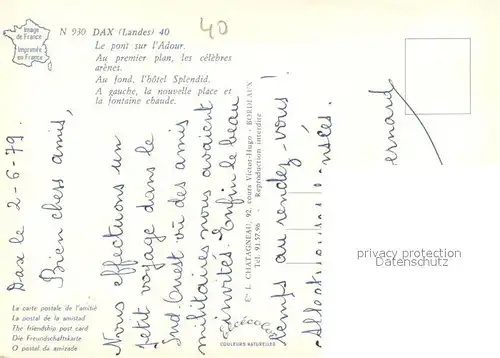 Image
de France
Imprimée
en France
N 930 DAX (Landes) 40
Le pont sur l'Adour.
Au premier plan, les célèbres
arènes.
Au fond, l'hôtel Splendid.
A gauche, la nouvelle place et
la fontaine chaude.
40
Dax le 2-6-79.
Bien chers amis,
Nous effectuons un
petit voyage dans le
Sud Ouest où des amis
militaires nous avaient
invités. Enfin le beau
temps au rendez-vous!
pensées.
ernard
Ets L. CHATAGNEAU, 92, cours Victor-Hugo - BORDEAUX
Tél. 91.57.96 - Reproduction interdite
COULEURS NATURELLES
La carte postale de l'amitié
La postal de la amistad
The friendship post card
Die Freundschaftskarte
O postal da amizade
privacy protection
Datenschutz